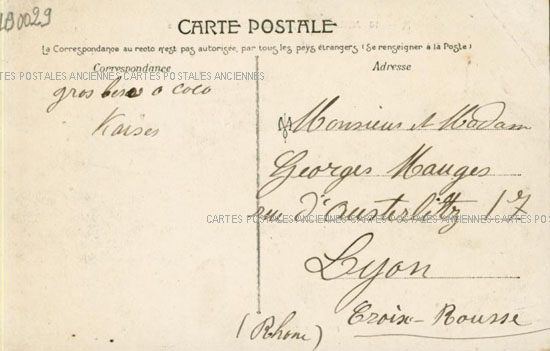 LB0029
CARTE POSTALE
La Correspondance au recto n'est pas autorisée, par tous les pays étrangers (Se renseigner à la Poste)
Correspondance
Adresse
CARTES POSTALES ANCIENNES CARTES POSTALES ANCIENNES
gros a coco
Monsieur et Madam
Georges Mauges
rue d'austerlitz 17
CARTES POSTALES ANCIENNES CARTES POSTALES ANCIENNES
Lyon
Croix-Rousse
(Rhone)